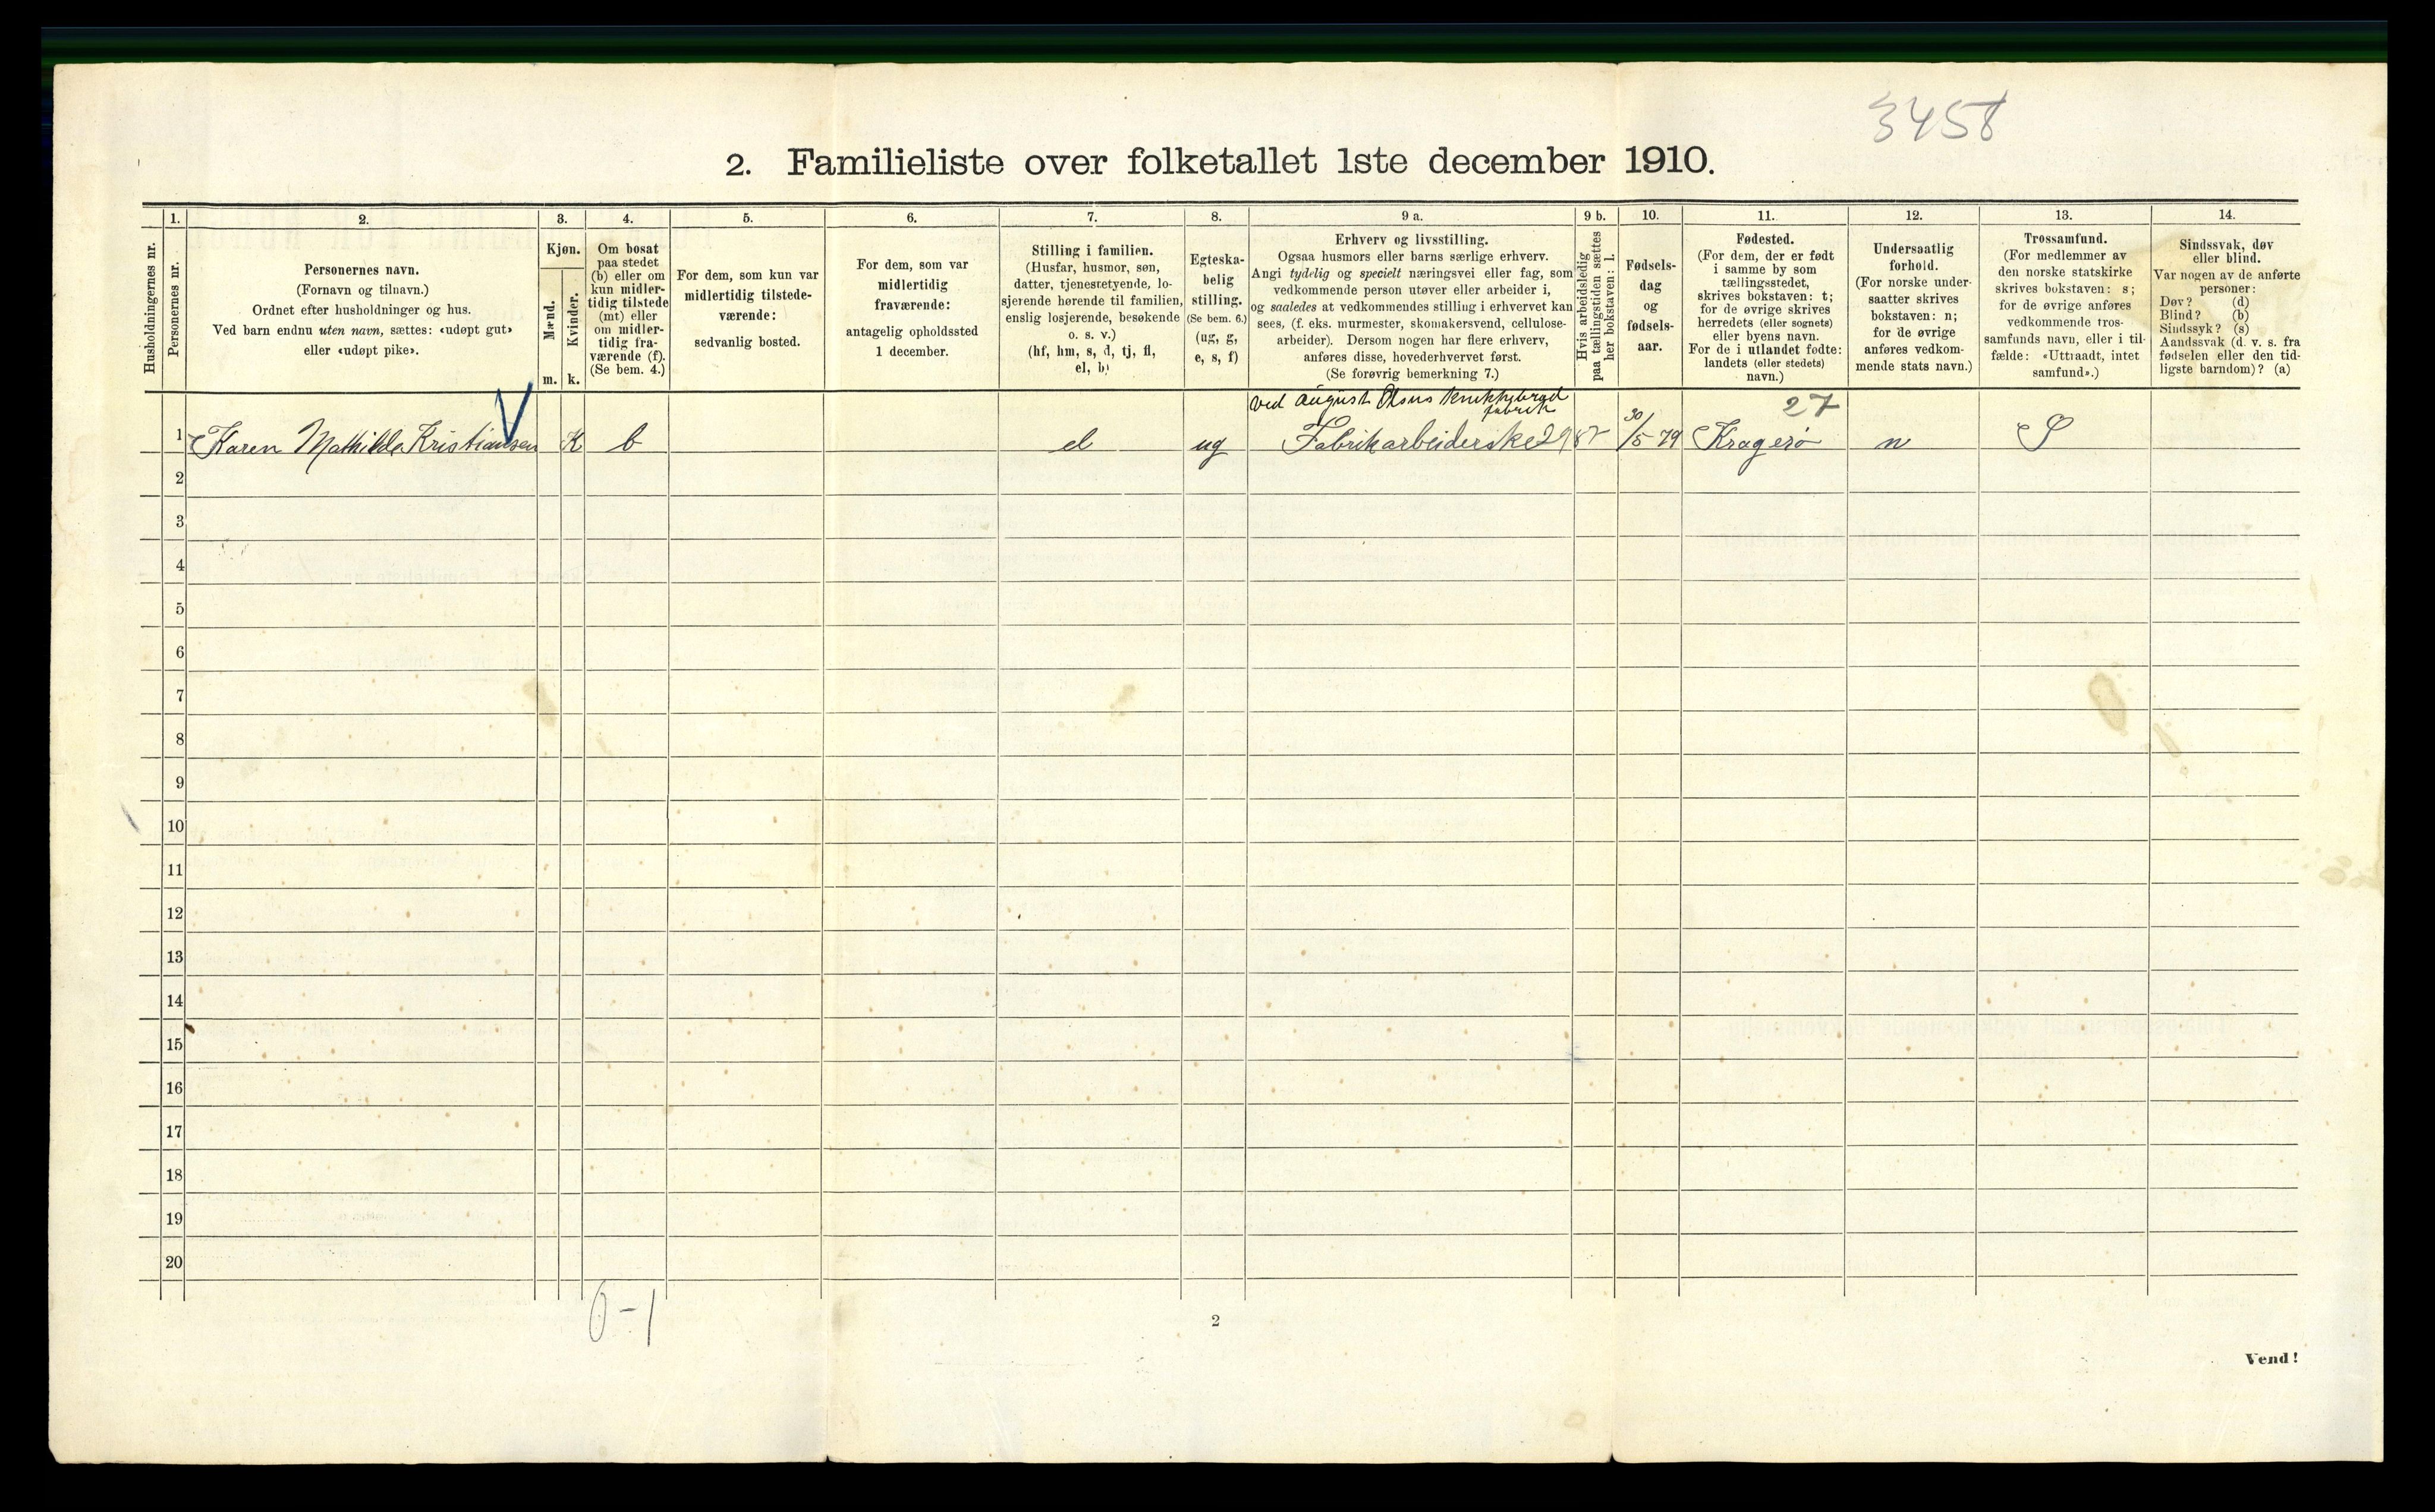 3458
2. Familieliste over folketallet 1ste december 1910.
1. 2. 3. 4. 5. 6. 7. 8. 9 a. 9 b. 10. 11. 12. 13. 14.
Husholdningernes nr.
Personernes nr.
Personernes navn.
(Fornavn og tilnavn.)
Ordnet efter husholdninger og hus.
Ved barn endnu uten navn, sættes: «udøpt gut»
eller «udøpt pike».
Kjøn.
Mænd.
Kvinder.
m. k.
Om bosat
paa stedet
(b) eller om
kun midler-
tidig tilstede
(mt) eller
om midler-
tidig fra-
værende (f).
(Se bem. 4.)
For dem, som kun var
midlertidig tilstede-
værende:
sedvanlig bosted.
For dem, som var
midlertidig
fraværende:
antagelig opholdssted
1 december.
Stilling i familien.
(Husfar, husmor, søn,
datter, tjenestetyende, lo-
sjerende hørende til familien,
enslig losjerende, besøkende
o. s. v.)
(hf, hm, s, d, tj, fl,
el, b)
Egteska-
belig
stilling.
(Se bem. 6.)
(ug, g,
e, s, f)
Erhverv og livsstilling.
Ogsaa husmors eller barns særlige erhverv.
Angi tydelig og specielt næringsvei eller fag, som
vedkommende person utøver eller arbeider i,
og saaledes at vedkommendes stilling i erhvervet kan
sees, (f. eks. murmester, skomakersvend, cellulose-
arbeider). Dersom nogen har flere erhverv,
anføres disse, hovederhvervet først.
(Se forøvrig bemerkning 7.)
Hvis arbeidsledig
paa tællingstiden sættes
her bokstaven: l.
Fødsels-
dag
og
fødsels-
aar.
Fødested.
(For dem, der er født
i samme by som
tællingsstedet,
skrives bokstaven: t;
for de øvrige skrives
herredets (eller sognets)
eller byens navn.
For de i utlandet fødte:
landets (eller stedets)
navn.)
Undersaatlig
forhold.
(For norske under-
saatter skrives
bokstaven: n;
for de øvrige
anføres vedkom-
mende stats navn.)
Trossamfund.
(For medlemmer av
den norske statskirke
skrives bokstaven: s;
for de øvrige anføres
vedkommende tros-
samfunds navn, eller i til-
fælde: «Uttraadt, intet
samfund».)
Sindssvak, døv
eller blind.
Var nogen av de anførte
personer:
Døv? (d)
Blind? (b)
Sindssyk? (s)
Aandssvak (d. v. s. fra
fødselen eller den tid-
ligste barndom)? (a)
ved August Olsens
fabrik 27
1 Karen Mathilde Kristiansen K b el ug Fabrikarbeiderske 30/5 79 Kragerø n S
2
3
4
5
6
7
8
9
10
11
12
13
14
15
16
17
18
19
20
0-1
2
Vend!